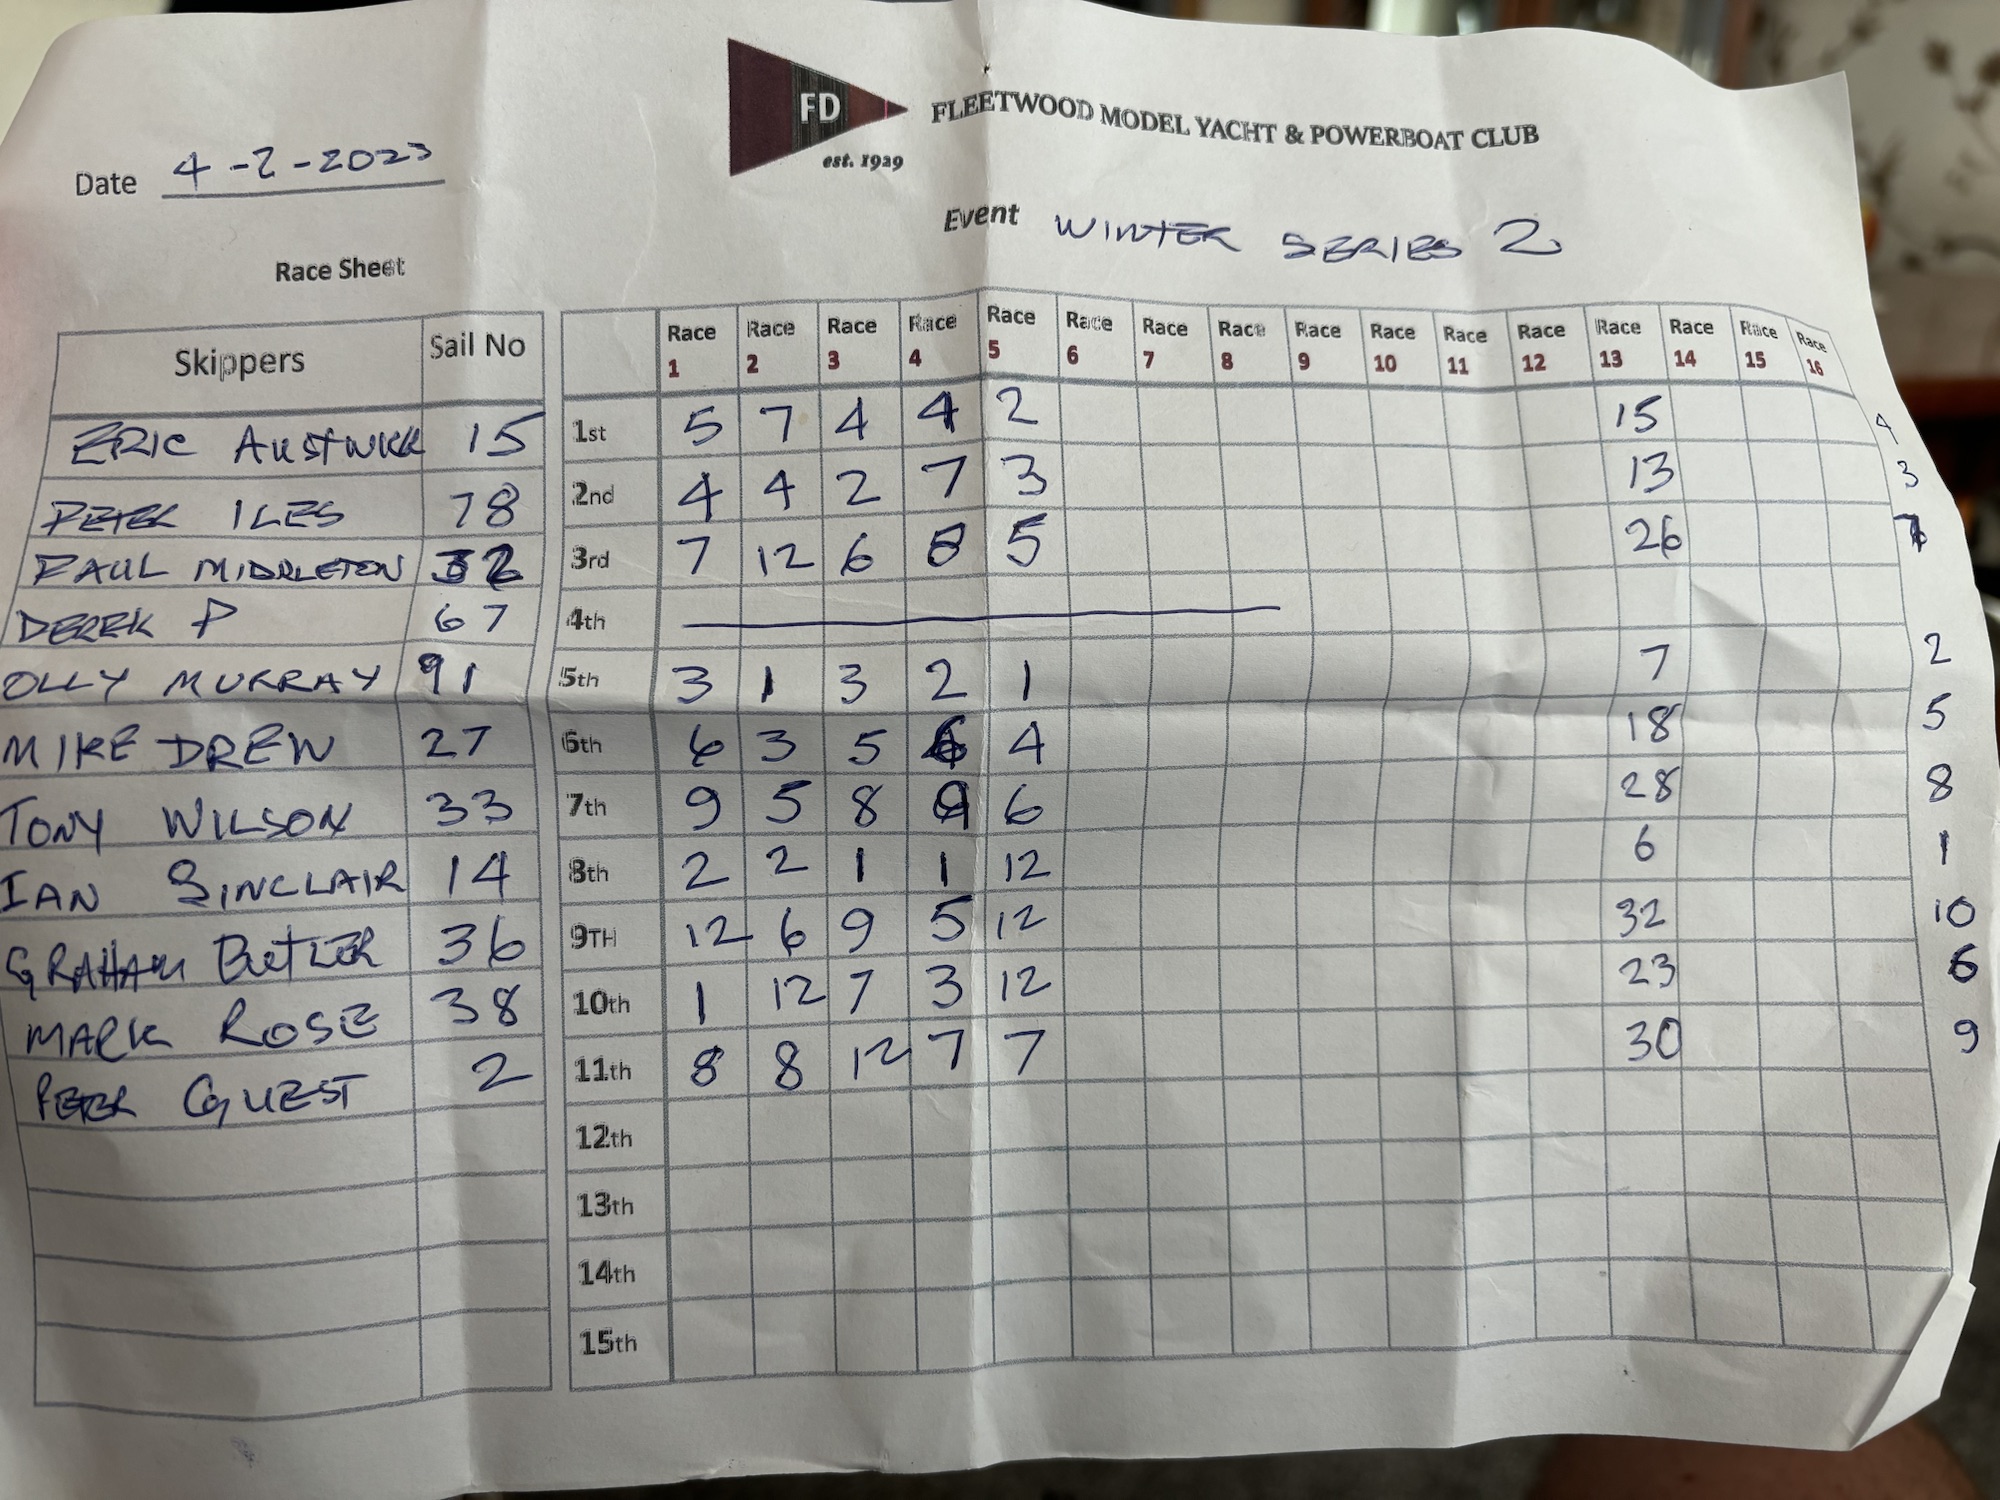 FD
est. 1929
FLEETWOOD MODEL YACHT & POWERBOAT CLUB
Date 4-2-2023
Event WINTER SERIES 2
Race Sheet
Skippers Sail No Race 1 Race 2 Race 3 Race 4 Race 5 Race 6 Race 7 Race 8 Race 9 Race 10 Race 11 Race 12 Race 13 Race 14 Race 15 Race 16
ERIC AUSTWICK 15 1st 5 7 4 4 2 15 4
PETER ILES 78 2nd 4 4 2 7 3 13 3
PAUL MIDDLETON 32 3rd 7 12 6 8 5 26 7
DEREK P 67 4th
OLLY MURRAY 91 5th 3 1 3 2 1 7 2
MIKE DREW 27 6th 6 3 5 6 4 18 5
TONY WILSON 33 7th 9 5 8 9 6 28 8
IAN SINCLAIR 14 8th 2 2 1 1 12 6 1
GRAHAM BUTLER 36 9TH 12 6 9 5 12 32 10
MARK ROSE 38 10th 1 12 7 3 12 23 6
PETER GUEST 2 11th 8 8 12 7 7 30 9
12th
13th
14th
15th